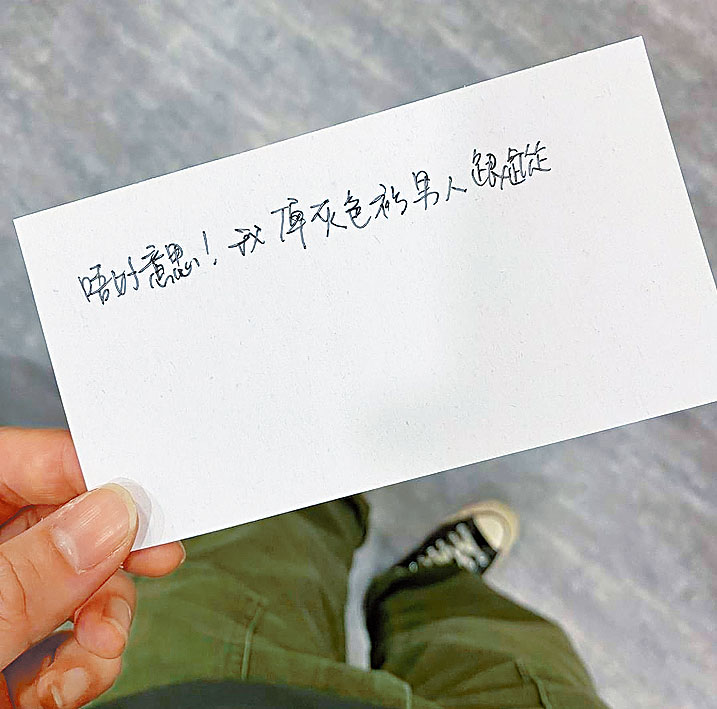 唔好意思！我俾灰色衫男人跟蹤